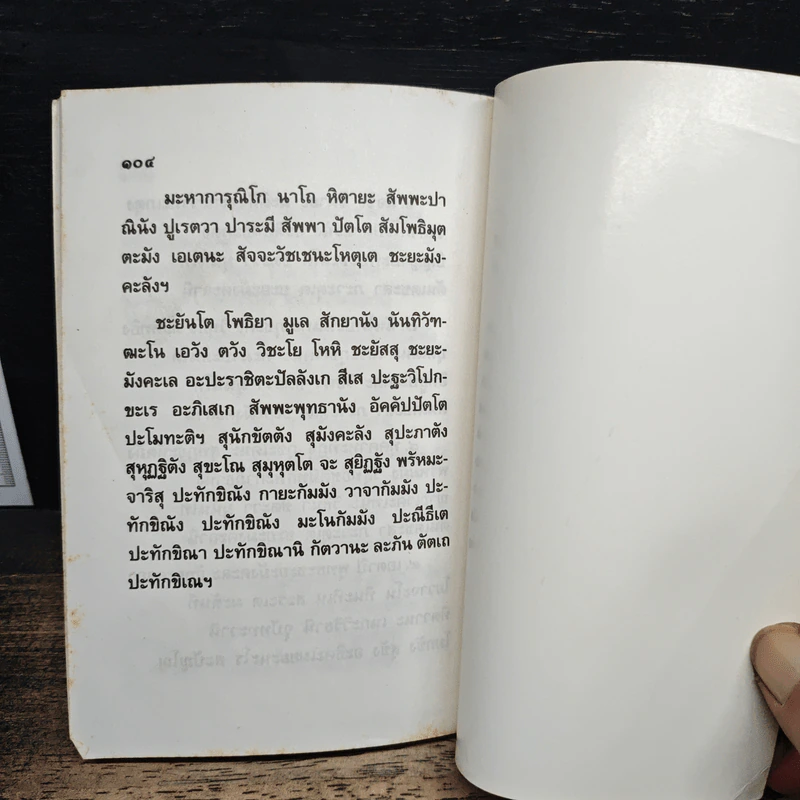 ๑๐๔
มะหาการุณิโก นาโถ หิตายะ สัพพะปา
ณินัง ปูเรตวา ปาระมี สัพพา ปัตโต สัมโพธิมุต
ตะมัง เอเตนะ สัจจะวัชเชนะโหตุเต ชะยะมัง-
คะลังฯ
ชะยันโต โพธิยา มูเล สักยานัง นันทิวัฑ-
ฒะโน เอวัง ตวัง วิชะโย โหหิ ชะยัสสุ ชะยะ-
มังคะเล อะปะราชิตะปัลลังเก สีเส ปะฐะวิโปก-
ขะเร อะภิเสเก สัพพะพุทธานัง อัคคัปปัตโต
ปะโมทะติฯ สุนักขัตตัง สุมังคะลัง สุปะภาตัง
สุหุฏฐิตัง สุขะโณ สุมุหุตโต จะ สุยิฏฐัง พรัหมะ-
จาริสุ ปะทักขิณัง กายะกัมมัง วาจากัมมัง ปะ-
ทักขิณัง ปะทักขิณัง มะโนกัมมัง ปะณีธีเต
ปะทักขิณา ปะทักขิณานิ กัตวานะ ละภัน ตัตเถ
ปะทักขิเณฯ